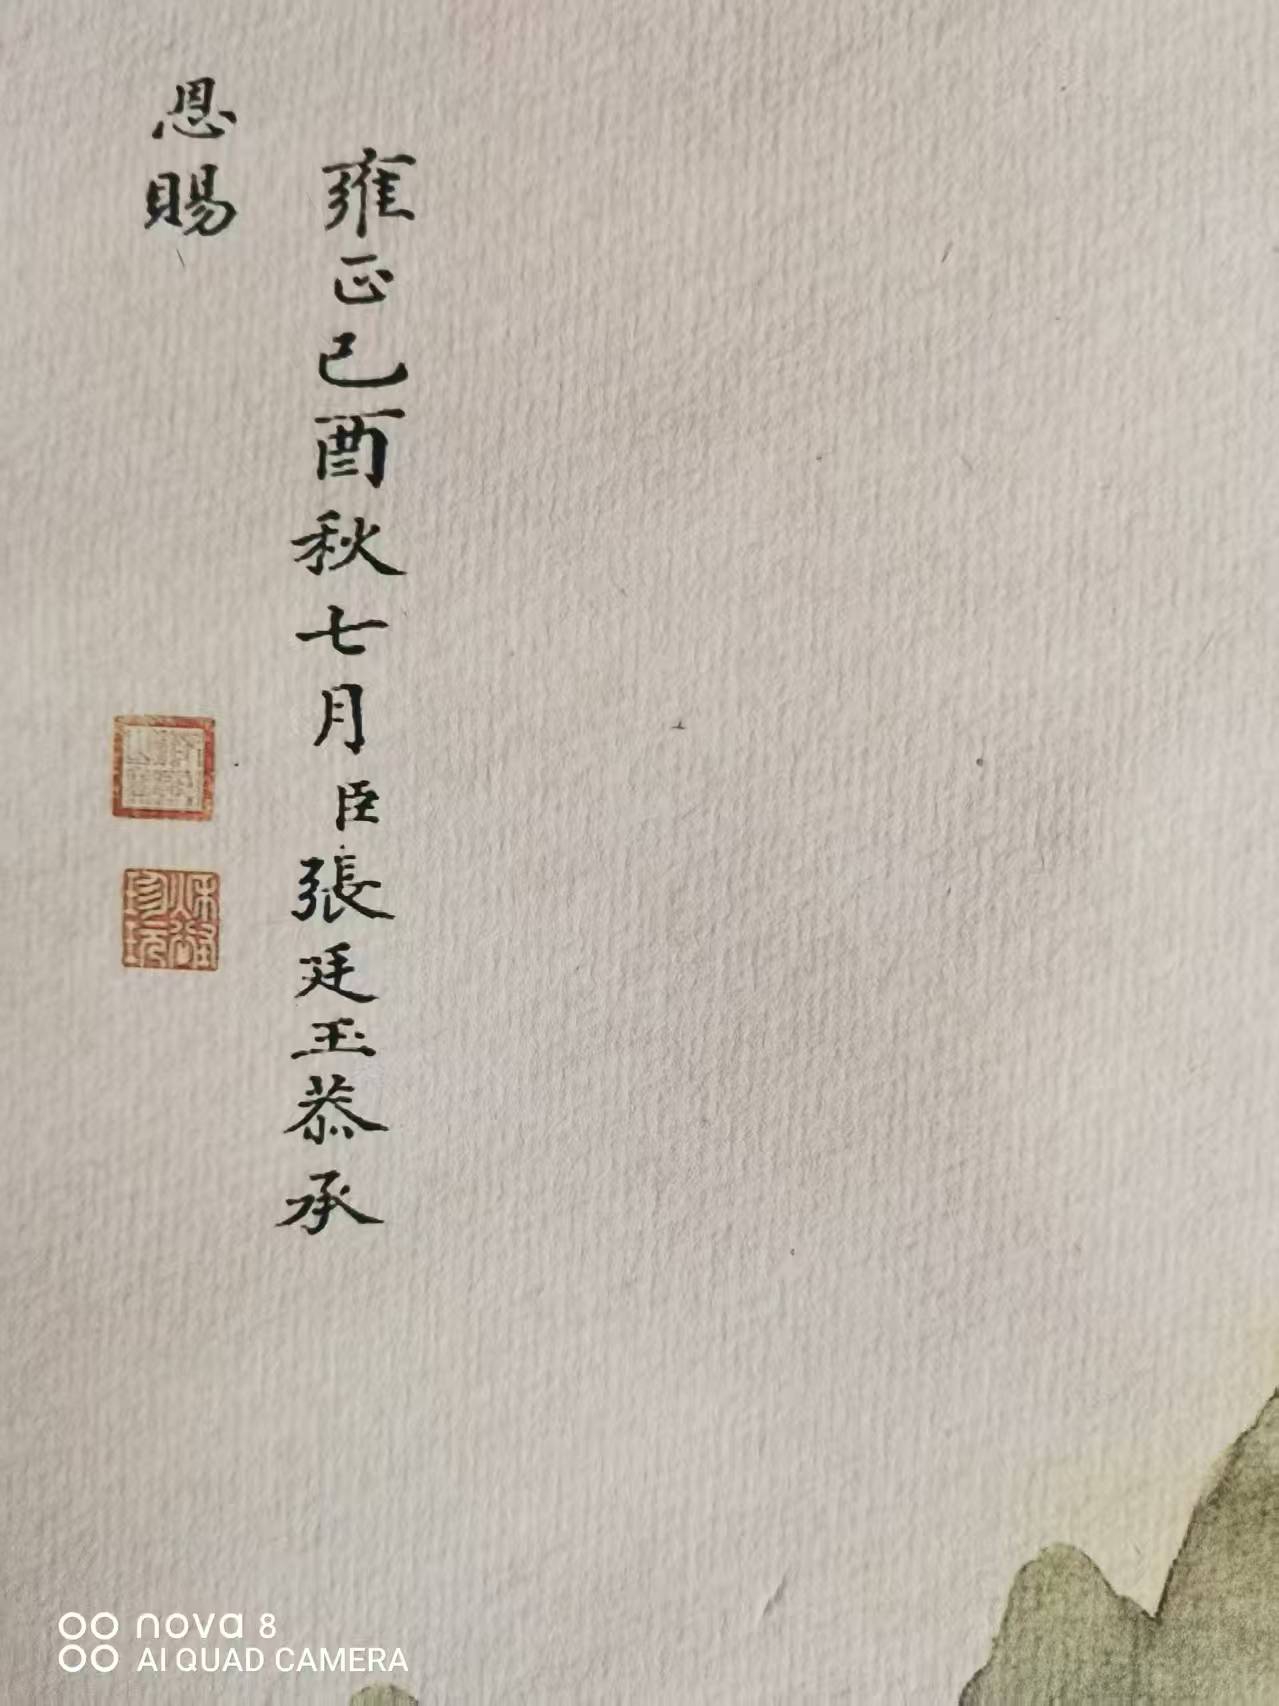 雍正己酉秋七月臣張廷玉恭承
恩賜
珍玩
nova 8
AI QUAD CAMERA